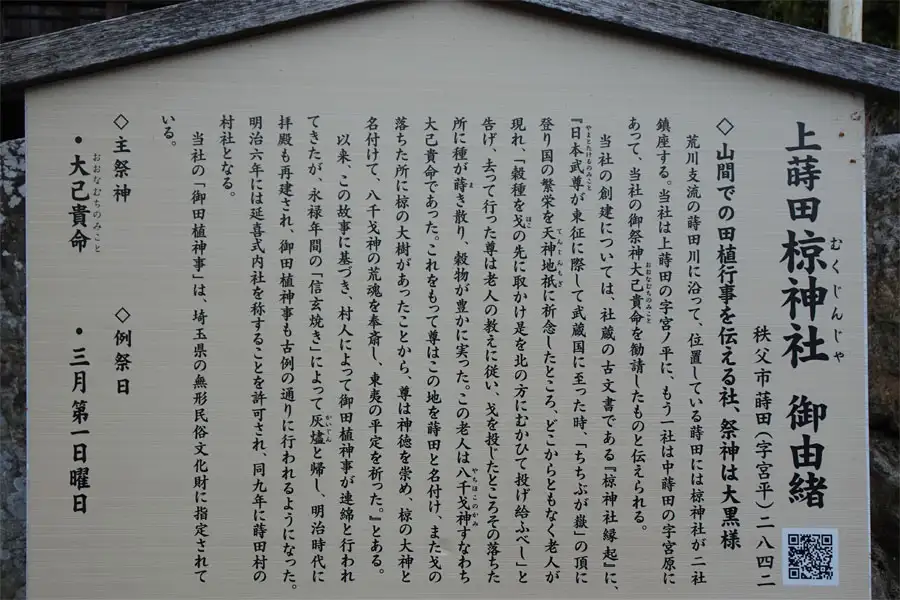 上蒔田椋神社 御由緒
むくじんじゃ
秩父市蒔田(字宮平)二八四二
◇山間での田植行事を伝える社、祭神は大黒様
荒川支流の蒔田川に沿って、位置している蒔田には椋神社が二社
鎮座する。当社は上蒔田の字宮ノ平に、もう一社は中蒔田の字宮原に
あって、当社の御祭神大己貴命を勧請したものと伝えられる。
おおなむちのみこと
当社の創建については、社蔵の古文書である『椋神社縁起』に、
『日本武尊が東征に際して武蔵国に至った時、「ちちぶが嶽」の頂に
やまとたけるのみこと
登り国の繁栄を天神地祇に祈念したところ、どこからともなく老人が
てんしんちぎ
現れ、「穀種を戈の先に取かけ是を北の方にむかひて投げ給ふべし」と
ほこ
告げ、去って行った尊は老人の教えに従い、戈を投じたところその落ちた
所に種が蒔き散り、穀物が豊かに実った。この老人は八千戈神すなわち
ま
やちほこのかみ
大己貴命であった。これをもって尊はこの地を蒔田と名付け、また戈の
落ちた所に椋の大樹があったことから、尊は神徳を崇め、椋の大神と
名付けて、八千戈神の荒魂を奉斎し、東夷の平定を祈った。』とある。
以来、この故事に基づき、村人によって御田植神事が連綿と行われ
てきたが、永禄年間の「信玄焼き」によって灰燼と帰し、明治時代に
かいじん
拝殿も再建され、御田植神事も古例の通りに行われるようになった。
明治六年には延喜式内社を称することを許可され、同九年に蒔田村の
村社となる。
当社の「御田植神事」は、埼玉県の無形民俗文化財に指定されて
いる。
◇主祭神
・大己貴命
おおなむちのみこと
◇例祭日
・三月第一日曜日